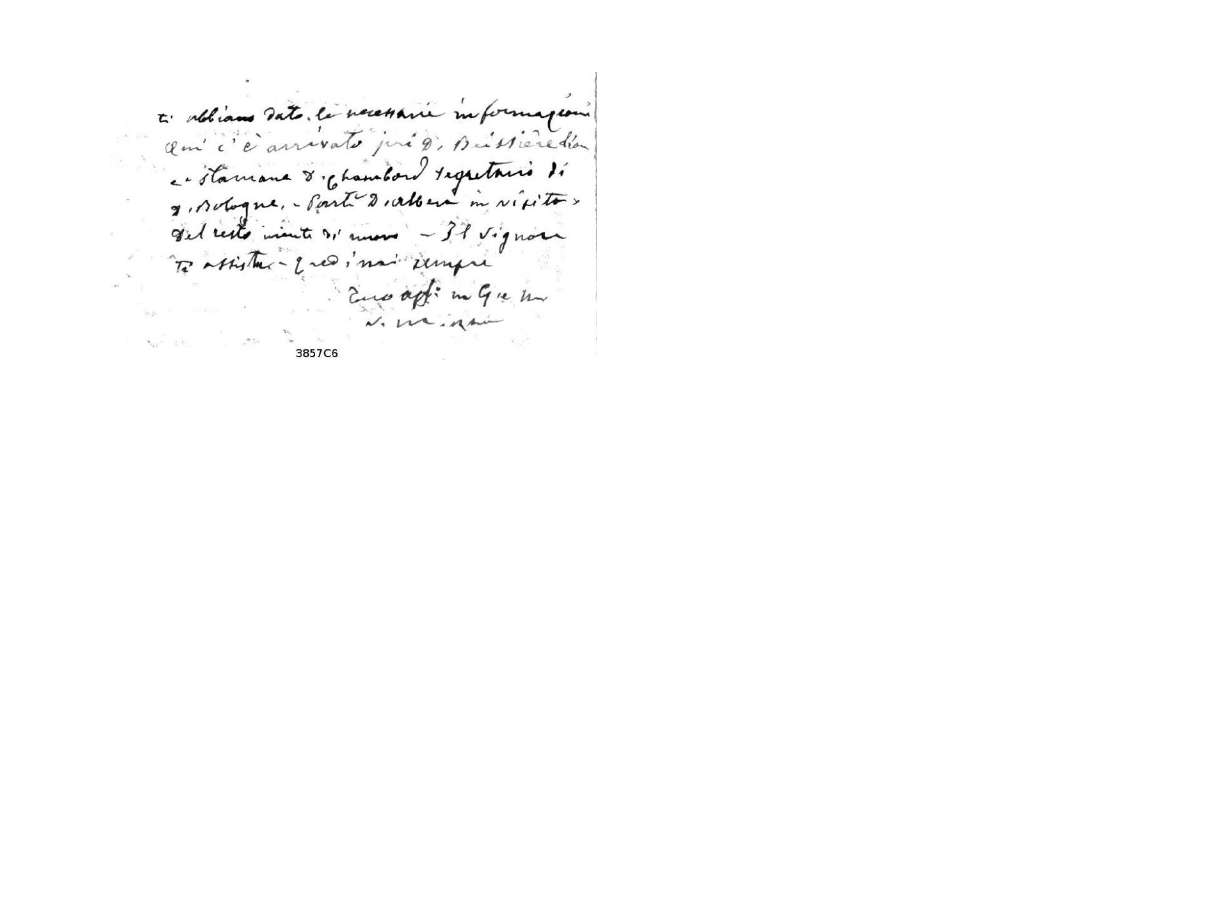 ti abbiano dato le necessarie informazioni
Qui c'è arrivato jeri D. Buissière
e stamane D. Chambord segretario di
D. Bologne. - Parti D. Albera in visita
Del resto niente di nuovo - Il Signore
ti assista - credimi sempre
Tuo aff: in G. e M.
3857C6